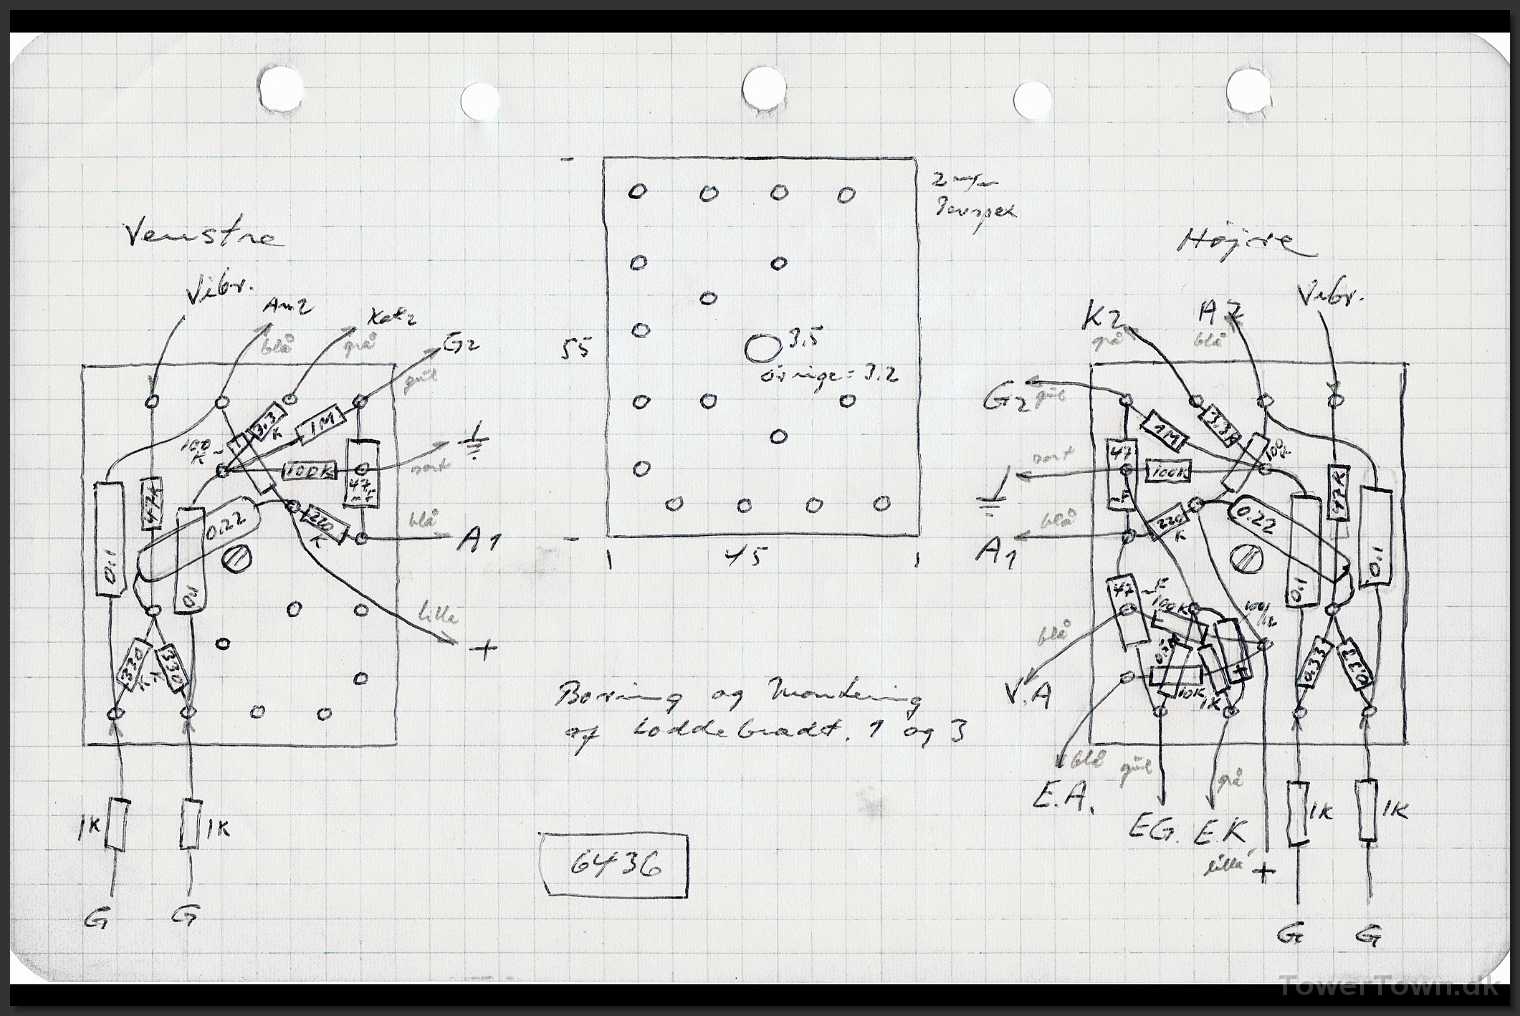 2 m/m
Venstre
Højre
Vibr.
An2
Kat2
blå
grå
G2
gul
100
K
3.3
K
1M
100K
sort
47
nF
47K
0.22
220
K
blå
A1
0.1
0.1
lilla
+
330
K
330
K
1K
1K
G
G
55
3.5
øvrige = 3.2
45
Boring og Montering
af Loddebrædt. 1 og 3
6436
K2
grå
A2
blå
Vibr.
G2
gul
1M
3.3K
100K
47
100K
sort
47K
0.22
220
K
blå
A1
0.1
0.1
47 nF
100K
blå
V.A
10K
1K
+
0.33
0.33
blå
E.A.
gul
EG.
grå
E.K
lilla
+
1K
1K
G
G
TowerTown.dk